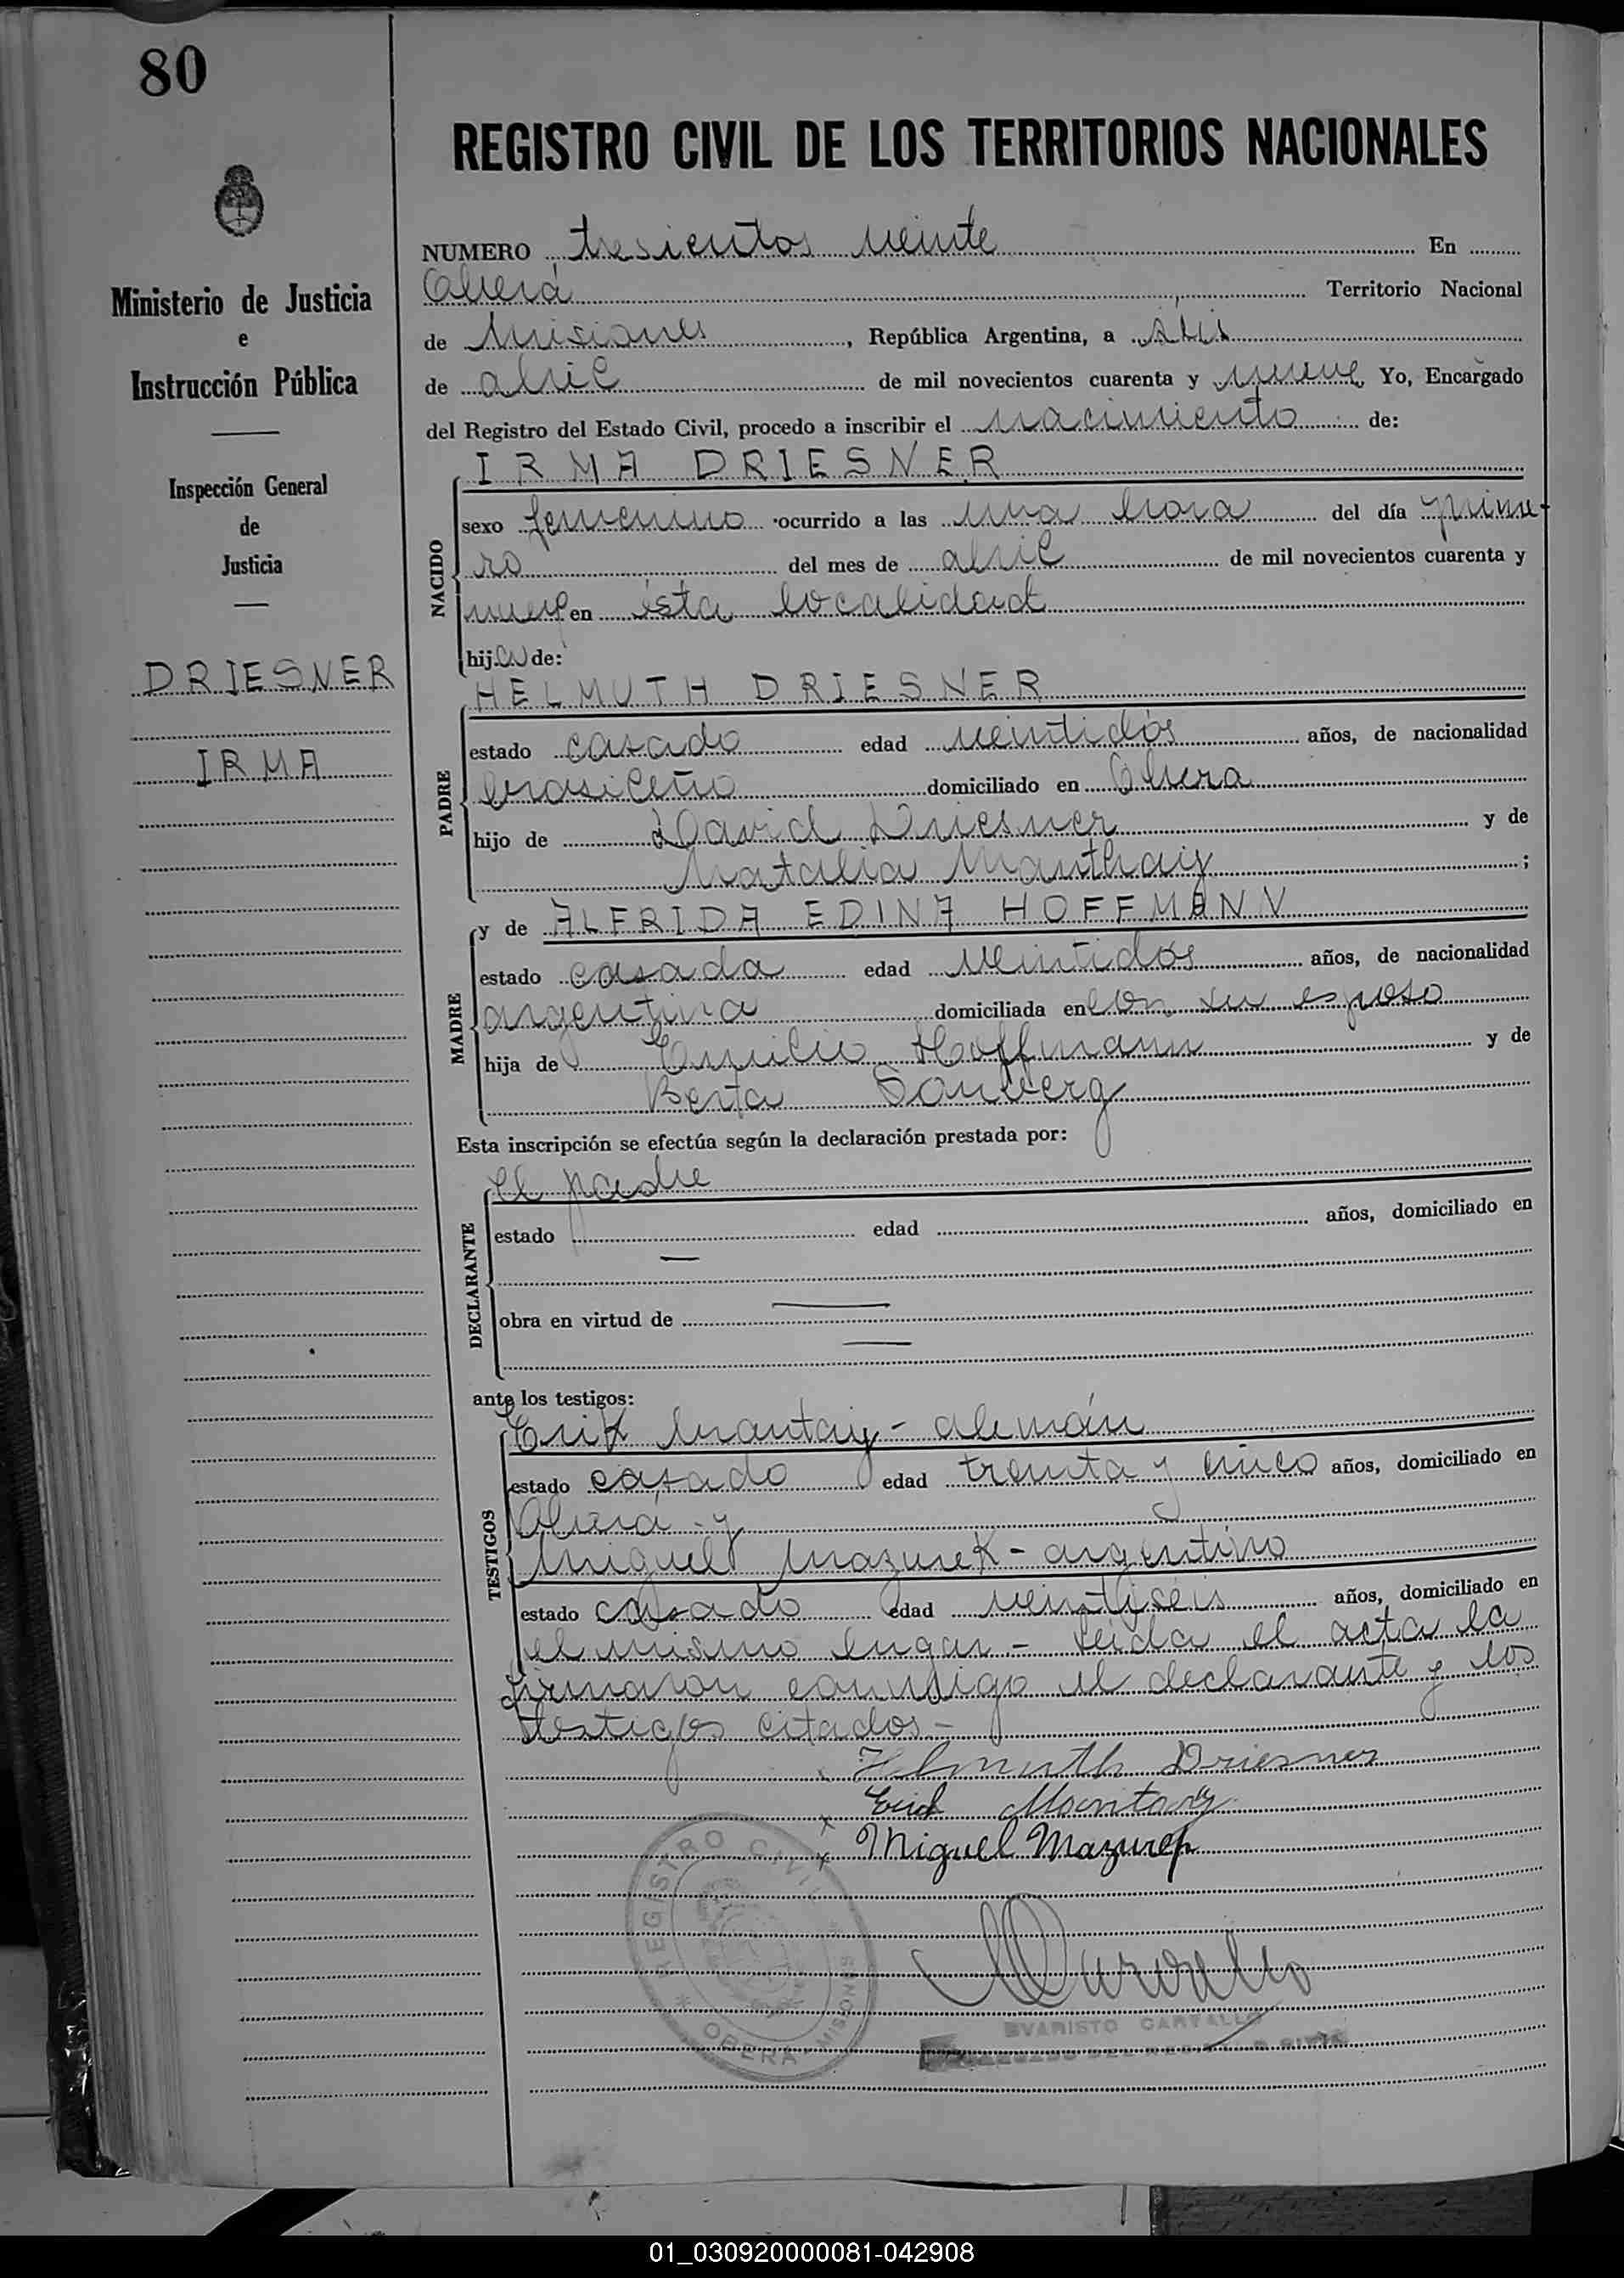 80
REGISTRO CIVIL DE LOS TERRITORIOS NACIONALES
Ministerio de Justicia
e
Instrucción Pública
Inspección General
de
Justicia
DRIESNER
IRMA
NUMERO tresientos veinte En
Oberá Territorio Nacional
de Misiones, República Argentina, a seis
de abril de mil novecientos cuarenta y nueve Yo, Encargado
del Registro del Estado Civil, procedo a inscribir el nacimiento de:
IRMA DRIESNER
NACIDO
sexo femenino ocurrido a las una hora del día prime-
ro del mes de abril de mil novecientos cuarenta y
nueve en ésta localidad
hija de:
HELMUTH DRIESNER
PADRE
estado casado edad veintidós años, de nacionalidad
brasileño domiciliado en Oberá
hijo de David Driesner y de
Natalia Manthaiy;
y de ALFRIDA EDINA HOFFMANN
MADRE
estado casada edad veintidós años, de nacionalidad
argentina domiciliada en con su esposo
hija de Emilio Hoffmann y de
Berta Sonberg
Esta inscripción se efectúa según la declaración prestada por:
el padre
DECLARANTE
estado edad años, domiciliado en
obra en virtud de
ante los testigos:
Erik Mantaiy - alemán
TESTIGOS
estado casado edad treinta y cinco años, domiciliado en
Oberá - y
Miguel Mazurek - argentino
estado casado edad veintiséis años, domiciliado en
el mismo lugar - Leída el acta la
firmaron conmigo el declarante y los
testigos citados -
Helmuth Driesner
x Erich Mantaiy
x Miguel Mazurek
REGISTRO CIVIL
* OBERA - MISIONES *
Carvallo
EVARISTO CARVALLO
ENCARGADO DEL REGISTRO CIVIL
01_030920000081-042908